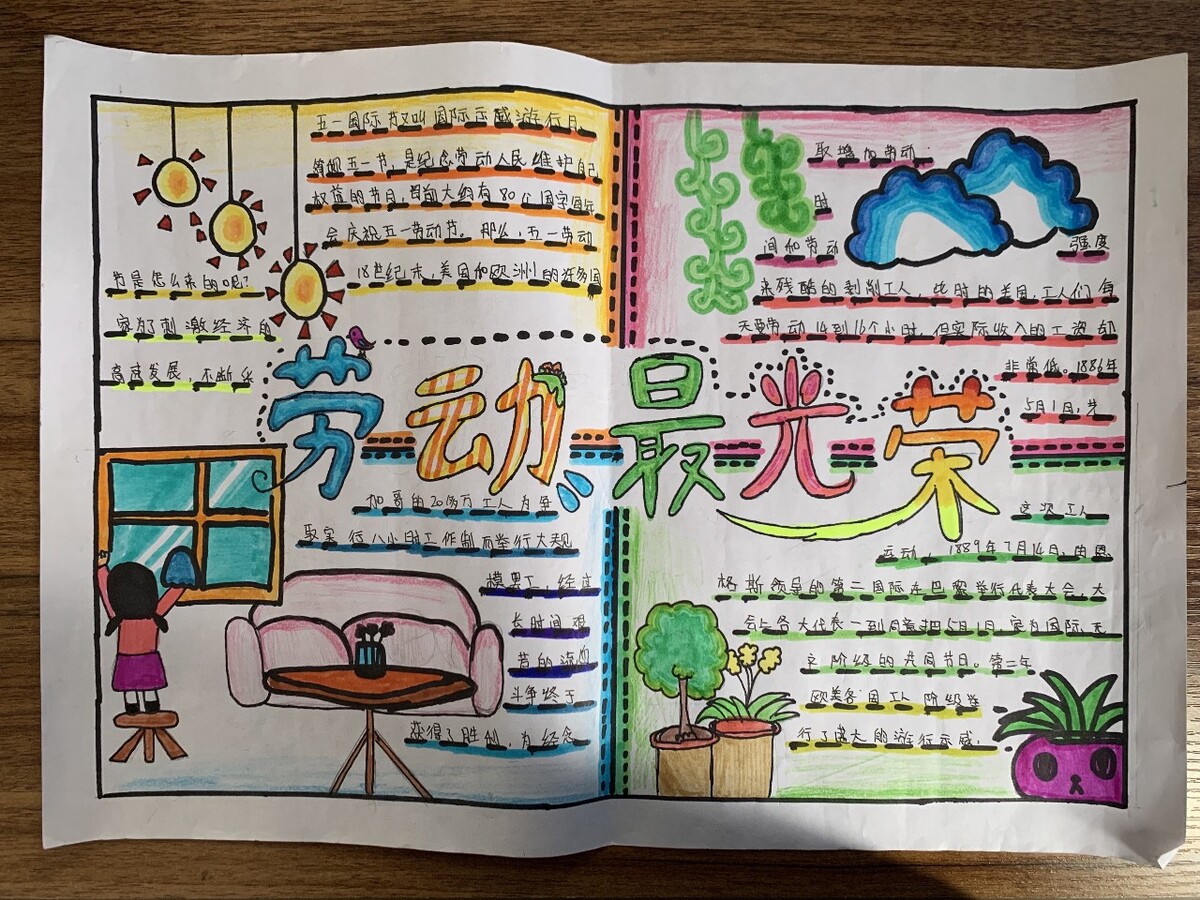 五一国际节又叫国际示威游行日
简称五一节,是纪念劳动人民维护自己
权益的节日,目前大约有80个国家每年
会庆祝五一劳动节。那么,五一劳动
节是怎么来的呢?
18世纪末,美国和欧洲的许多国
家为了刺激经济的
高速发展,不断采
取增加劳动
时
间和劳动
强度
来残酷的剥削工人,此时的美国,工人们每
天要劳动14到16个小时,但实际收入的工资却
非常低。1886年
5月1日,芝
劳动最光荣
加哥的20多万工人为争
取实行八小时工作制而举行大规
模罢工,经过
长时间艰
苦的流血
斗争终于
获得了胜利,为纪念
这次工人
运动,1889年7月14日,由恩
格斯领导的第二国际在巴黎举行代表大会,大
会上各大代表一到同意把5月1日,定为国际无
产阶级的共同节日。第二年
欧美各国工人阶级举
行了盛大的游行示威.